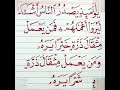 يَوْمَئِذٍ يَصْدُرُ النَّاسُ أَشْتَاتًا
لِيُرَوْا أَعْمَالَهُمْ ۝ فَمَن يَعْمَلْ
مِثْقَالَ ذَرَّةٍ خَيْرًا يَرَهُ ۝
وَمَن يَعْمَلْ مِثْقَالَ ذَرَّةٍ
شَرًّا يَرَهُ ۝